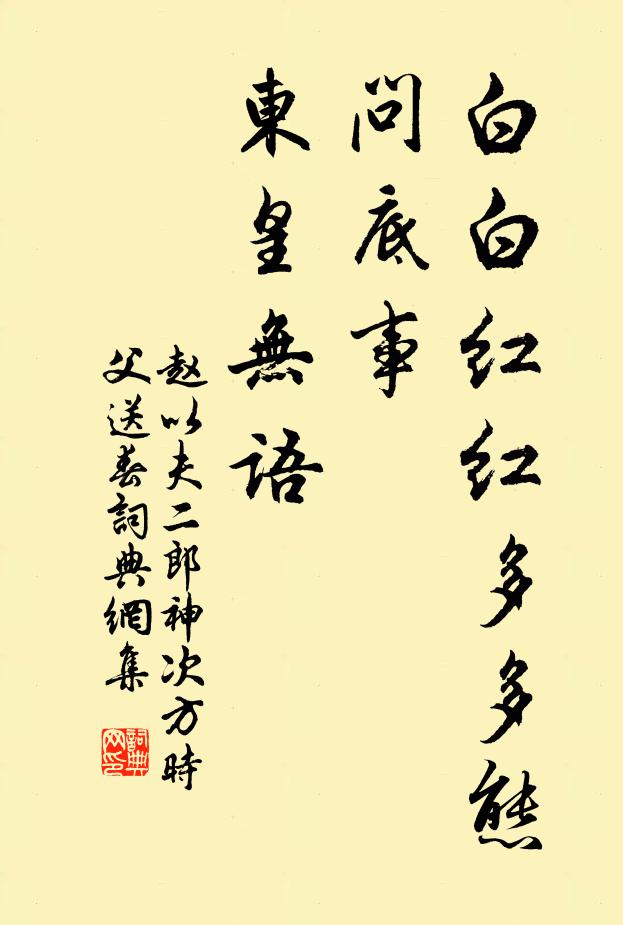 白白红红多多態
問底事
東皇無語
赵以夫二郎神次方時
父送春詞典網集
詞典
网印